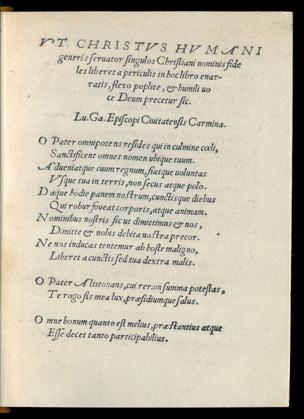 VT CHRISTVS HVMANI
generis seruator singulos Christiani nominis fide
les liberet a periculis in hoc libro enar-
ratis, flexo poplite, & humili uo
ce Deum precetur sic.
Lu. Ga. Episcopi Ciuitatensis Carmina.
O Pater omnipotens resides qui in culmine cœli,
Sanctificent omnes nomen ubique tuum.
Adueniatque tuum regnum, fiatque uoluntas
Vsque tua in terris, non secus atque polo.
Daque hodie panem nostrum, cunctisque diebus
Qui robur foueat corporis, atque animam.
Nominibus nostris sic ut dimittimus & nos,
Dimitte & nobis debita nostra precor.
Ne nos inducas tentemur ab hoste maligno,
Liberet a cunctis sed tua dextra malis.
O Pater Altitonans, cui rerum summa potestas,
Te rogo sis mea lux, præsidiumque salus.
Omne bonum quanto est melius, præstantius atque
Esse decet tanto participabilius.